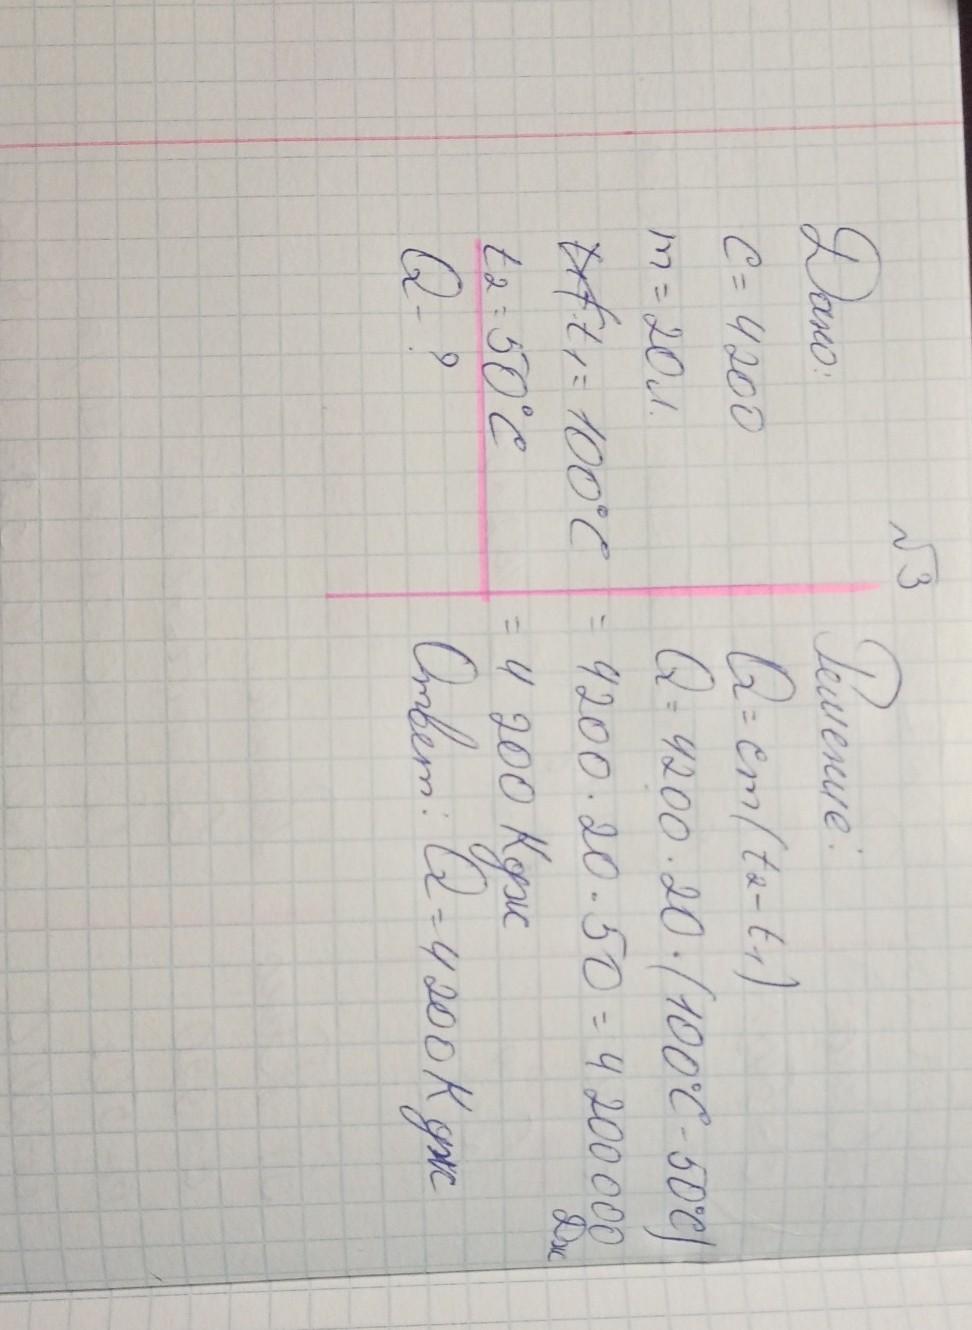 √3
Дано:
c = 4200
m = 20л.
t₁ = 100°C
t₂ = 50°C
Q - ?
Решение:
Q = cm(t₂ - t₁)
Q = 4200 · 20 · (100°C - 50°C)
= 4200 · 20 · 50 = 4 200 000 Дж
= 4 200 Кдж
Ответ: Q = 4200 Кдж